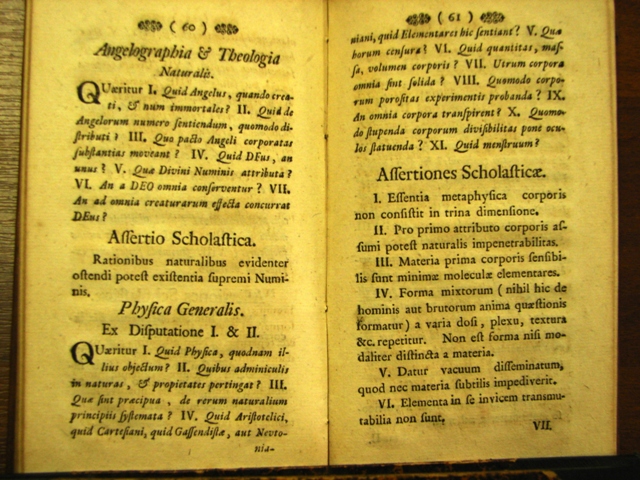 ( 60 )
Angelographia & Theologia
Naturalis.
QUæritur I. Quid Angelus, quando crea-
ti, & num immortales? II. Quid de
Angelorum numero sentiendum, quomodo di-
stributi? III. Quo pacto Angeli corporatas
substantias moveant? IV. Quid DEus, an
unus? V. Quæ Divini Numinis attributa?
VI. An a DEO omnia conserventur? VII.
An ad omnia creaturarum effecta concurrat
DEus?
Assertio Scholastica.
Rationibus naturalibus evidenter
ostendi potest existentia supremi Numi-
nis.
Physica Generalis.
Ex Disputatione I. & II.
QUæritur I. Quid Physica, quodnam il-
lius objectum? II. Quibus adminiculis
in naturas, & propietates pertingat? III.
Quæ sint præcipua, de rerum naturalium
principiis systemata? IV. Quid Aristotelici,
quid Cartesiani, quid Gassendistæ, aut Nevto-
nia-
( 61 )
niani, quid Elementares hic sentiant? V. Quæ
horum censura? VI. Quid quantitas, mas-
sa, volumen corporis? VII. Utrum corpora
omnia sint solida? VIII. Quomodo corpo-
rum porositas experimentis probanda? IX.
An omnia corpora transpirent? X. Quomo-
do stupenda corporum divisibilitas pone ocu-
los statuenda? XI. Quid menstruum?
Assertiones Scholasticæ.
I. Essentia metaphysica corporis
non consistit in trina dimensione.
II. Pro primo attributo corporis as-
sumi potest naturalis impenetrabilitas.
III. Materia prima corporis sensibi-
lis sunt minimæ moleculæ elementares.
IV. Forma mixtorum ( nihil hic de
hominis aut brutorum anima quæstionis
formatur) a varia dosi, plexu, textura
&c. repetitur. Non est forma nisi mo-
daliter distincta a materia.
V. Datur vacuum disseminatum,
quod nec materia subtilis impediverit.
VI. Elementa in se invicem transmu-
tabilia non sunt.
VII.